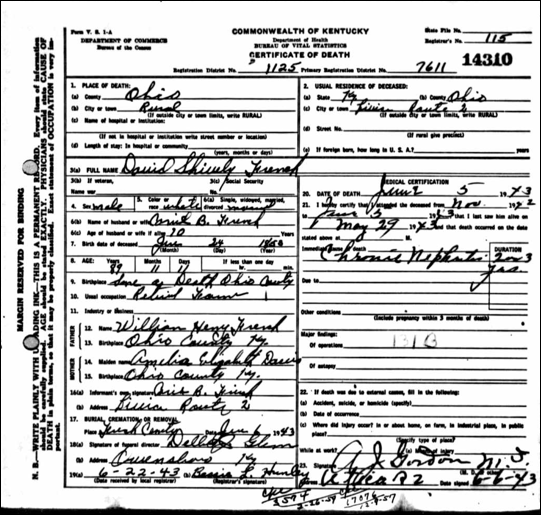 Form V. S. 1-A
DEPARTMENT OF COMMERCE
Bureau of the Census
COMMONWEALTH OF KENTUCKY
Department of Health
BUREAU OF VITAL STATISTICS
CERTIFICATE OF DEATH
State File No.
Registrar's No. 115
14310
Registration District No. 1125 Primary Registration District No. 7611
MARGIN RESERVED FOR BINDING
N. B.—WRITE PLAINLY WITH UNFADING INK—THIS IS A PERMANENT RECORD. Every item of information
should be carefully supplied. AGE should be stated EXACTLY. PHYSICIANS should state CAUSE OF
DEATH in plain terms, so that it may be properly classified. Exact statement of OCCUPATION is very im-
portant.
1. PLACE OF DEATH:
(a) County Ohio
(b) City or town Rural
(If outside city or town limits, write RURAL)
(c) Name of hospital or institution:
(If not in hospital or institution write street number or location)
(d) Length of stay: In hospital or community
(years, months or days)
2. USUAL RESIDENCE OF DECEASED:
(a) State Ky (b) County Ohio
(c) City or town Route 2
(If outside city or town limits, write RURAL)
(d) Street No.
(If rural give precinct)
(e) If foreign born, how long in U. S. A.? years
3(a) FULL NAME David Shively French
3(b) If veteran, name war
3(c) Social Security No.
4. Sex male
5. Color or race white
6(a) Single, widowed, married, divorced married
6(b) Name of husband or wife B. French
6(c) Age of husband or wife if alive 70 Years
7. Birth date of deceased June 24
(Month) (Day) (Year)
8. AGE: Years Months Days If less than one day
11 11 hr. min.
9. Birthplace Ohio County
10. Usual occupation Retired Farmer
11. Industry or Business
FATHER
12. Name William Henry French
13. Birthplace Ohio County Ky.
MOTHER
14. Maiden name Amelia Elizabeth Davis
15. Birthplace Ohio County Ky.
16(a) Informant's own signature B. French
(b) Address Route 2
17. BURIAL, CREMATION, OR REMOVAL
Place Date June 6 1943
18(a) Signature of funeral director Glenn
(b) Address Owensboro Ky
19(a) 6-22-43
(Date received by local registrar) (Registrar's signature)
MEDICAL CERTIFICATION
20. DATE OF DEATH June 5 1943
21. I hereby certify that I attended the deceased from Nov. 1942
to June 5 1943 that I last saw him alive on
May 29 1943 and that death occurred on the date
stated above at m.
Immediate cause of death DURATION
Chronic Nephritis 2 or 3
yrs.
Due to
Other conditions
(Include pregnancy within 3 months of death)
Major findings:
Of operations 131B
Of autopsy
22. If death was due to external causes, fill in the following:
(a) Accident, suicide, or homicide (specify)
(b) Date of occurrence
(c) Where did injury occur? In or about home, on farm, in industrial place, in public
place?
(Specify type of place)
While at work? (e) Means of injury
23. Signature A. J. Gordon M. D.
Address Date signed 6-6-43